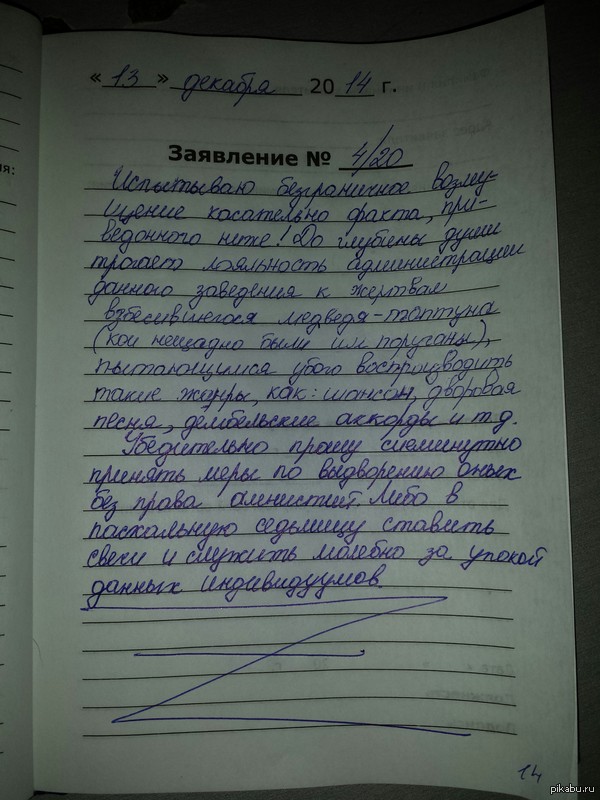 « 13 » декабря 2014 г.
Заявление № 4/20
Испытываю безграничное возму-
щение касательно факта, при-
ведонного ниже! До глубины души
трогает лояльность администрации
данного заведения к жертвам
взбесившегося медведя-топтуна
(кои нещадно были им поруганы),
пытающимся убого воспроизводить
такие жанры, как: шансон, дворовая
песня, дембельские аккорды и т.д.
Убедительно прошу сиеминутно
принять меры по выдворению оных
без права амнистий. Либо в
пасхальную седьмицу ставить
свечи и служить молебно за упокой
данных индивидуумов.
14
pikabu.ru